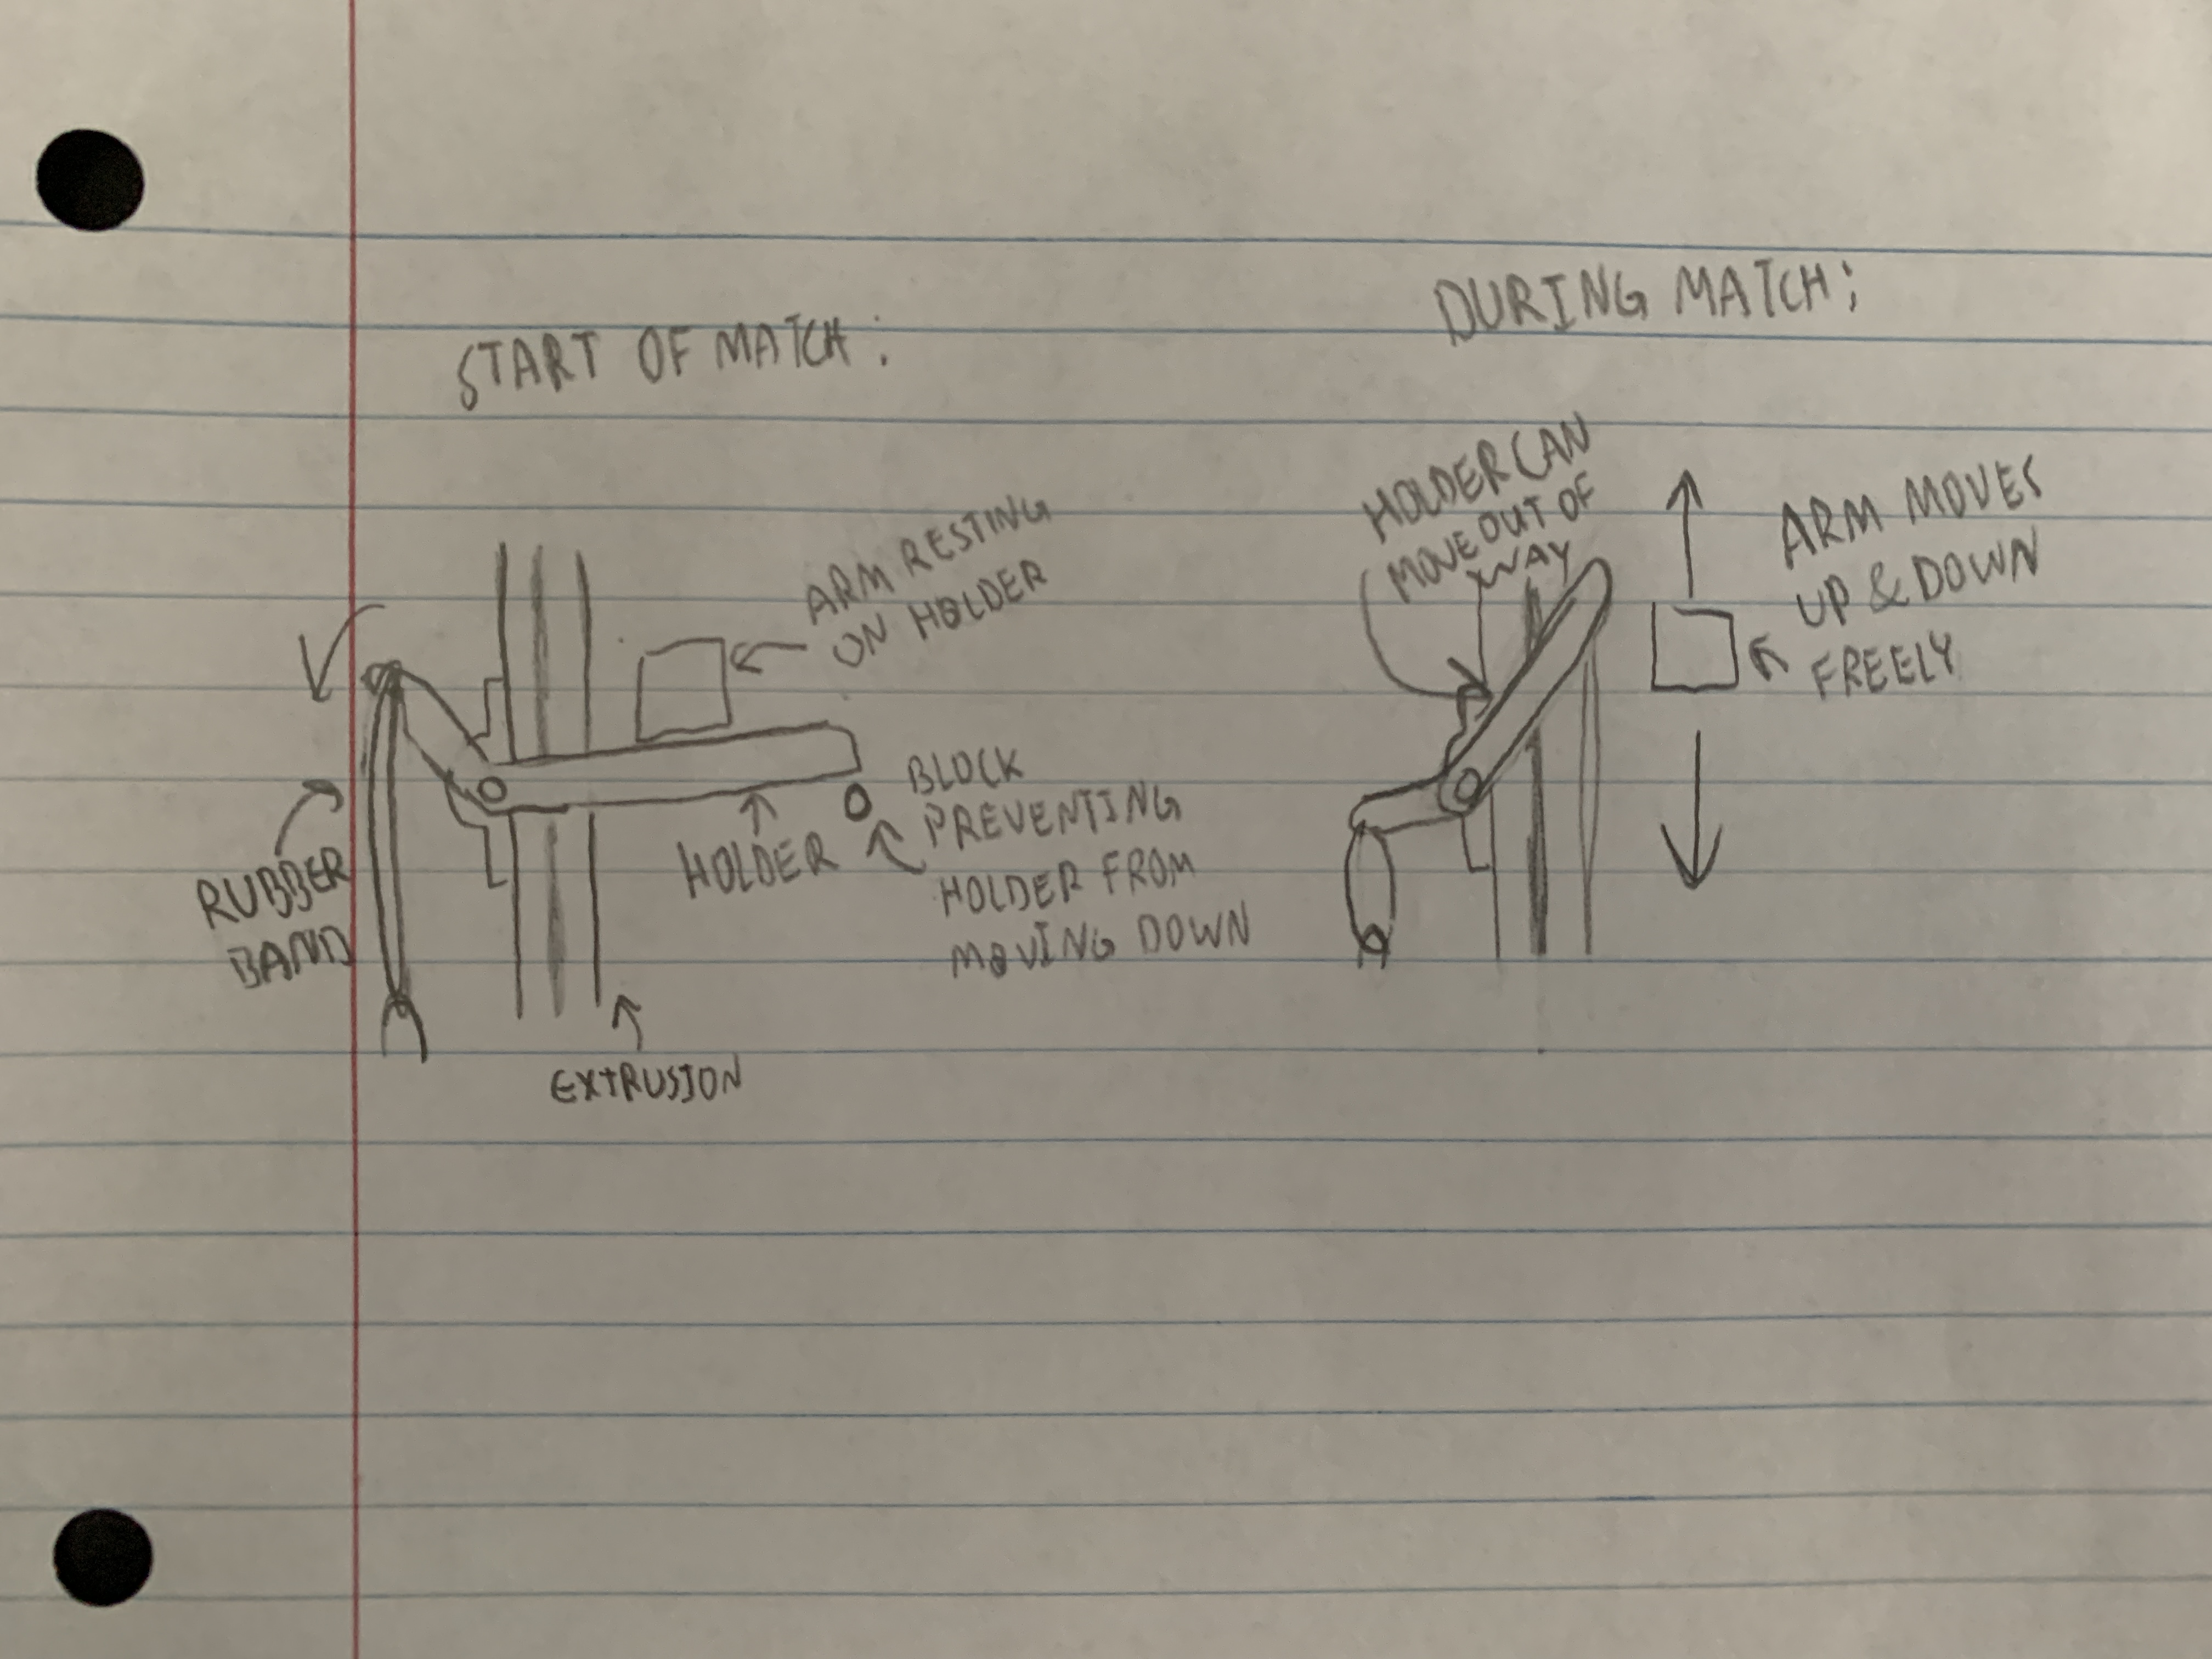 START OF MATCH:
ARM RESTING
ON HOLDER
RUBBER
BAND
HOLDER
BLOCK
PREVENTING
HOLDER FROM
MOVING DOWN
EXTRUSION
DURING MATCH:
HOLDER CAN
MOVE OUT OF
WAY
ARM MOVES
UP & DOWN
FREELY